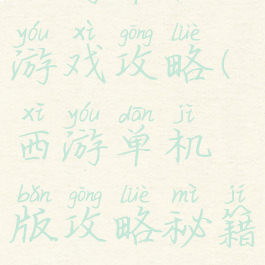 yóu xì gōng lüè
游戏攻略(
xī yóu dān jī
西游单机
bǎn gōng lüè mì jí
版攻略秘籍